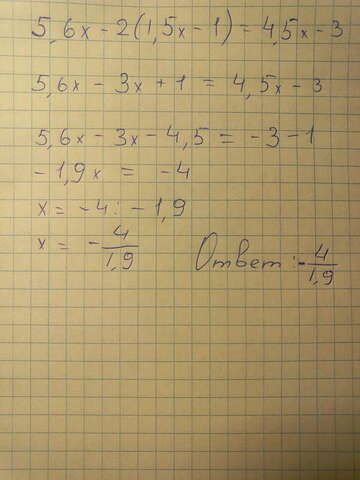 5,6x - 2(1,5x - 1) = 4,5x - 3
5,6x - 3x + 1 = 4,5x - 3
5,6x - 3x - 4,5 = -3 - 1
- 1,9x = -4
x = -4 : -1,9
x = -4/1,9 Ответ: -4/1,9